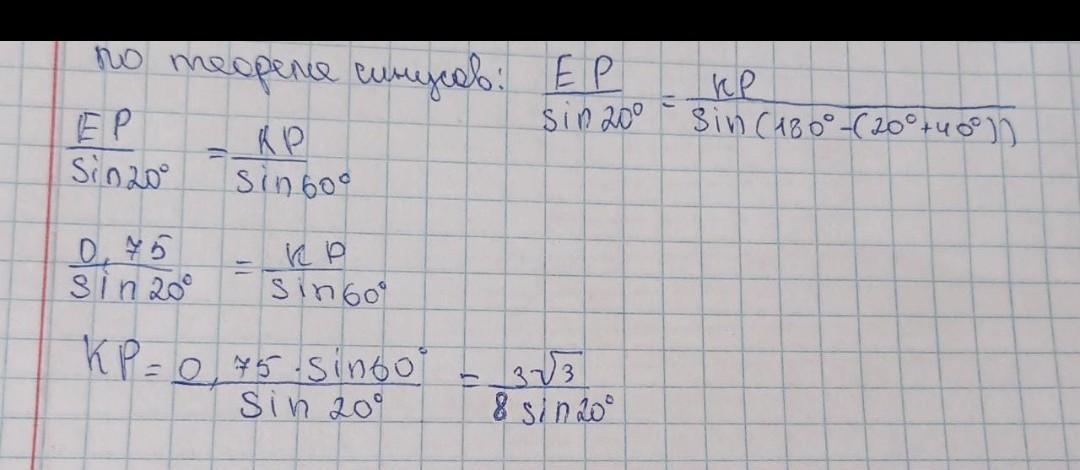 по теореме синусов: EP/sin20° = KP/sin(180°-(20°+40°))
EP/sin20° = KP/sin60°
0,75/sin20° = KP/sin60°
KP = 0,75·sin60°/sin20° = 3√3/8sin20°